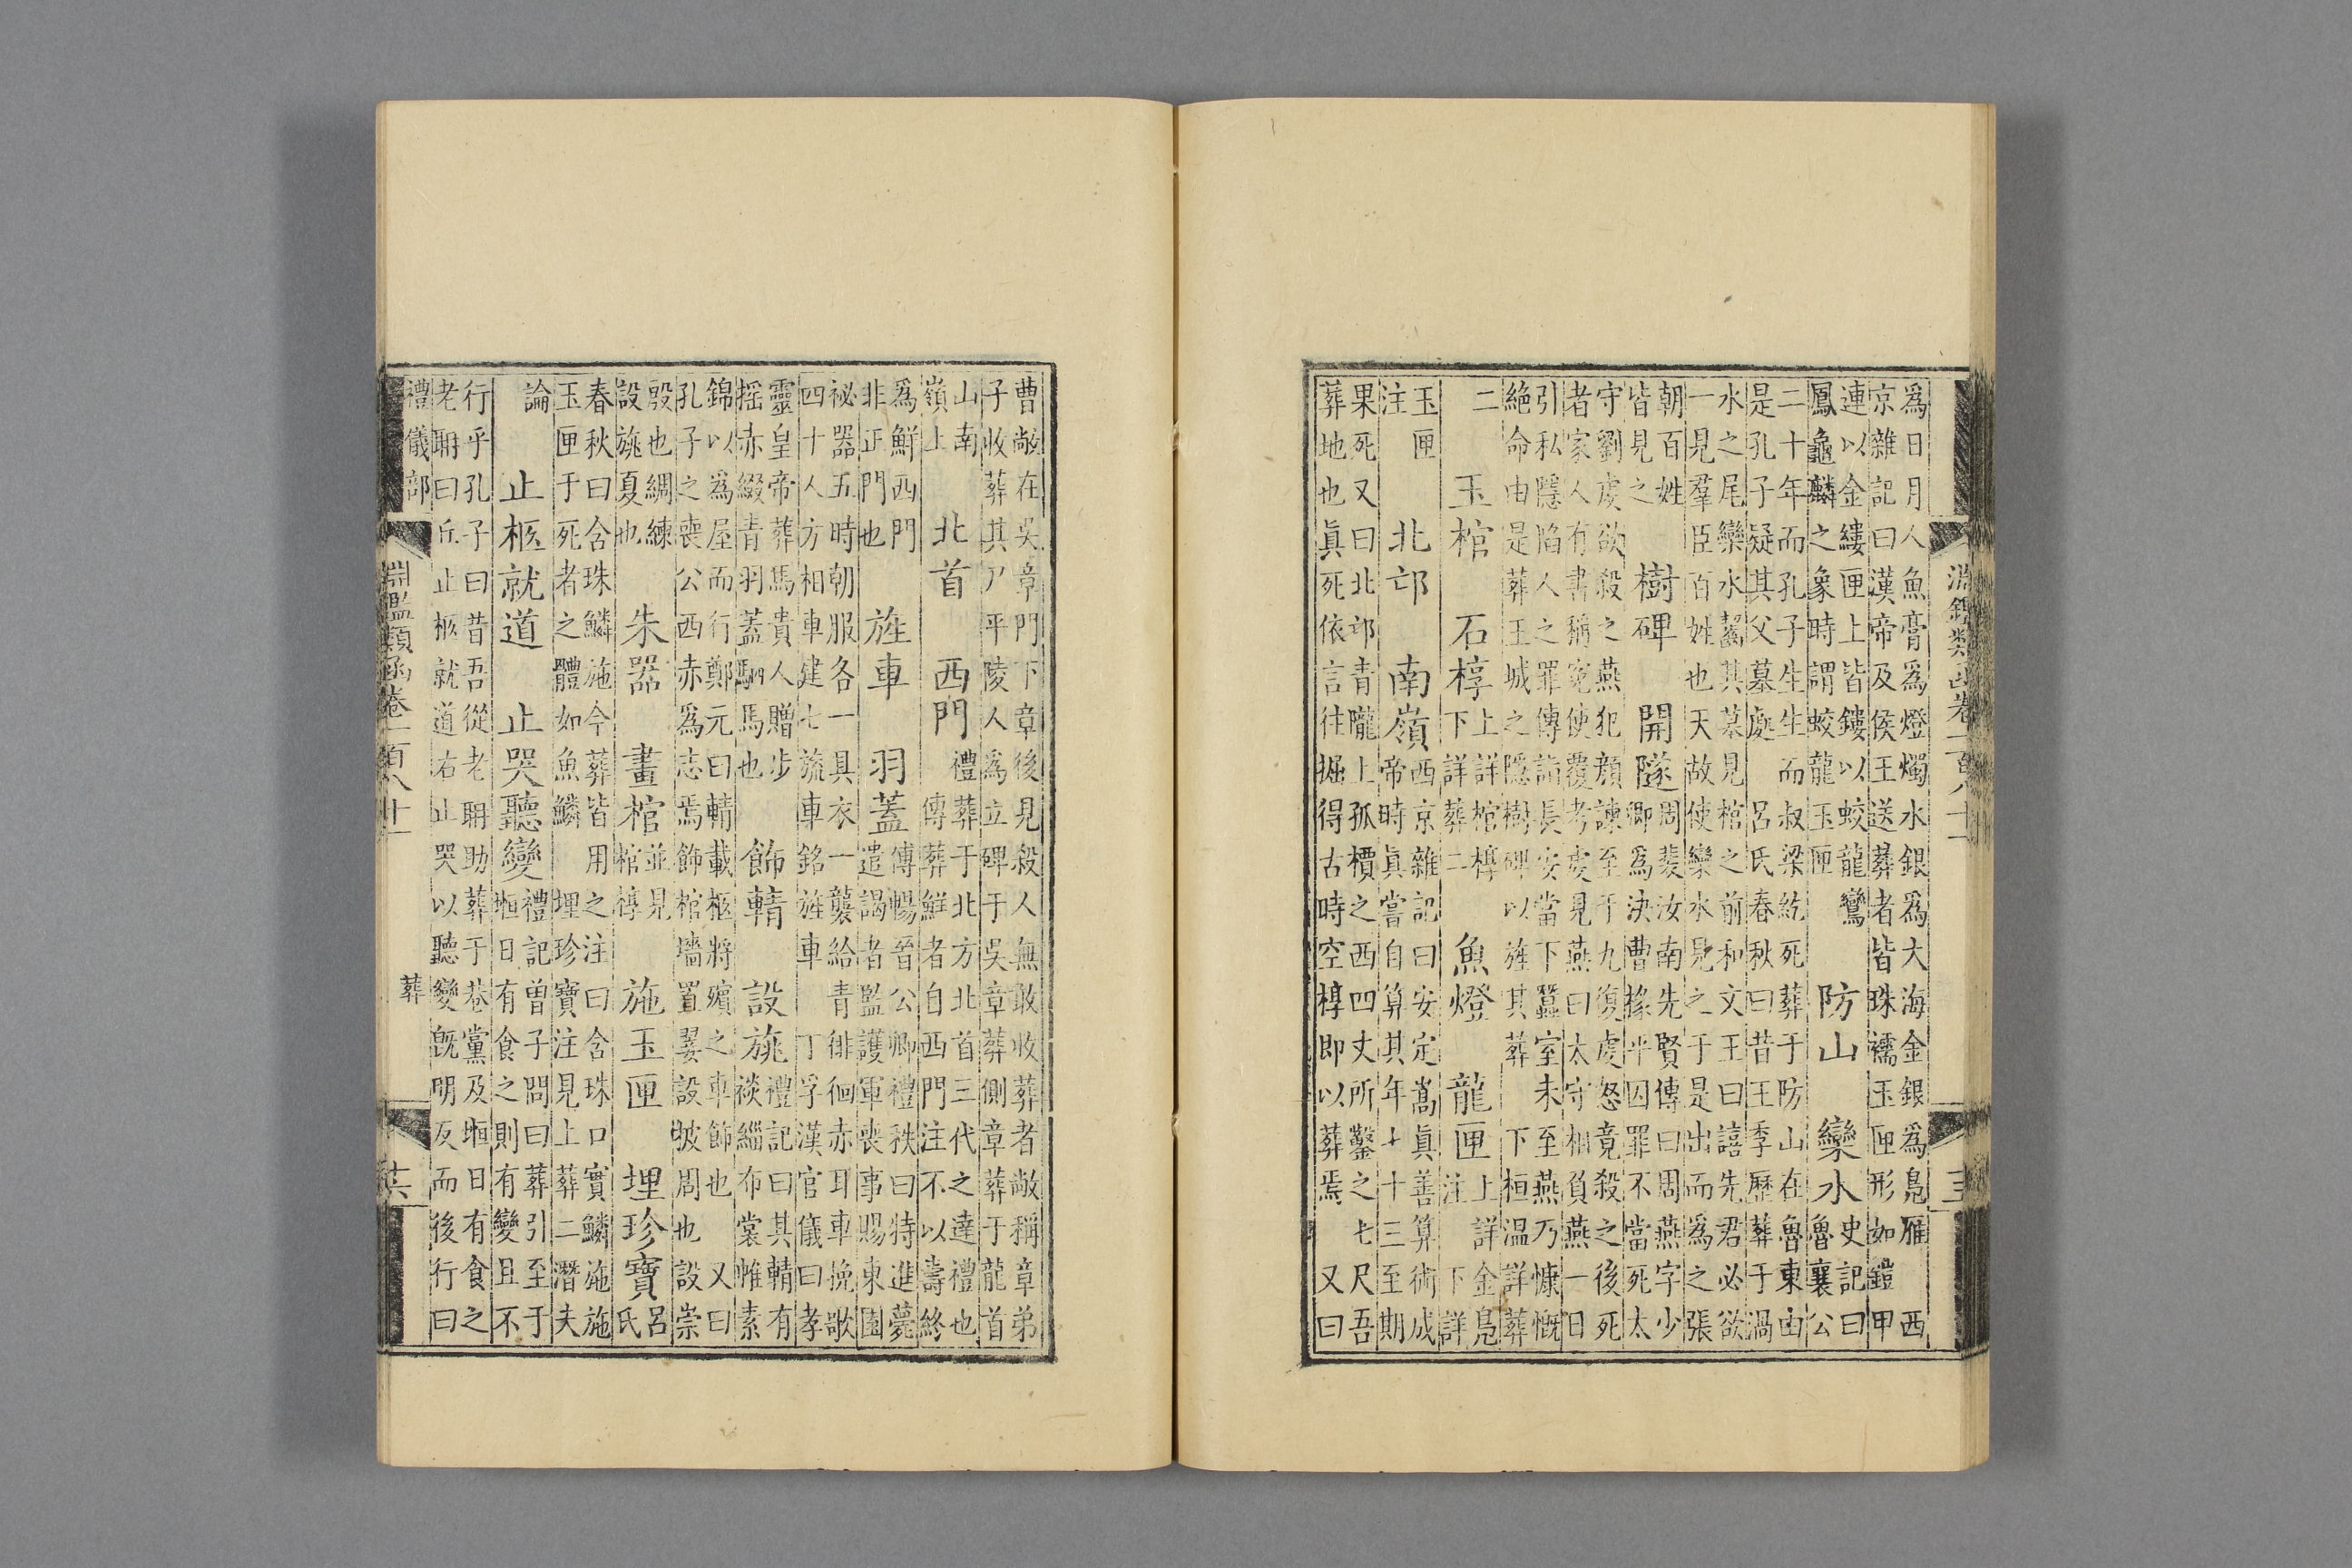 爲日月人魚膏爲燈燭水銀爲大海金銀爲鳧雁 西
京雜記曰漢帝及侯王送葬者皆珠襦玉匣形如鎧甲
連以金縷匣上皆鏤以蛟龍鸞
鳳龜麟之象時謂蛟龍玉匣
防山 欒水
史記曰
魯襄公
二十年而孔子生生而叔梁紇死葬于防山在魯東由
是孔子疑其父墓處 呂氏春秋曰昔王季歷葬于渦
水之尾欒水齧其墓見棺之前和文王曰譆先君必欲
一見羣臣百姓也天故使欒水見之于是出而爲之張
朝百姓
皆見之
樹碑 開隧
周裴汝南先賢傳曰周燕字少
卿爲決曹掾平囚罪不當死太
守劉虔欲殺之燕犯顏諫至于九復虔怒竟殺之後死
者家人有書稱寃使覆考虔見燕曰太守相負燕一日
引私隱陷人之罪傳詣長安當下蠶室未至燕乃慷慨
絕命由是葬王城之隱樹碑以旌其葬 下桓溫詳葬
二
玉棺 石椁
上詳棺椁
下詳葬二
魚燈 龍匣
上詳金鳧
注 下詳
玉匣
注
北邙 南嶺
西京雜記曰安定嵩眞善算術成
帝時眞嘗自算其年七十三至期
果死又曰北邙青隴上孤檟之西四丈所鑿之七尺吾
葬地也眞死依言往掘得古時空椁即以葬焉 又曰
淵鑑類函卷一百八十一
曹敞在吳章門下章後見殺人無敢收葬者敞稱章弟
子收葬其尸平陵人爲立碑于吳章葬側章葬于龍首
山南
嶺上
北首 西門
禮葬于北方北首三代之達禮也
傳葬鮮者自西門注不以壽終
爲鮮西門
非正門也
旌車 羽蓋
傅暢晉公卿禮秩曰特進薨
遣謁者監護軍喪事賜東園
祕器五時朝服各一具衣一襲給青徘徊赤耳車挽歌
四十人方相車建七旒車銘旌車 丁孚漢官儀曰孝
靈皇帝葬馬貴人贈步
搖赤綴青羽蓋駟馬也
飾輤 設旐
禮記曰其輤有
裧緇布裳帷素
錦以爲屋而行鄭元曰輤載柩將殯之車飾也 又曰
孔子之喪公西赤爲志焉飾棺墻置翣設披周也設崇
殷也綢練
設旐夏也
朱器 畫棺
並見
棺椁
施玉匣 埋珍寶
呂
氏
春秋曰含珠鱗施今葬皆用之注曰含珠口實鱗施施
玉匣于死者之體如魚鱗 埋珍寶注見上葬二潛夫
論
止柩就道 止哭聽變
禮記曾子問曰葬引至于
堩日有食之則有變且不
行乎孔子曰昔吾從老聃助葬于巷黨及堩日有食之
老聃曰丘止柩就道右止哭以聽變旣明反而後行曰
禮儀部
淵鑑類函卷一百八十一
葬
十六